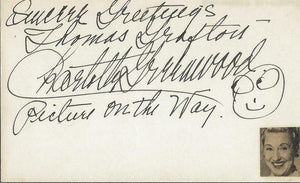 Sincere Greetings
Thomas Grafton -
Charlotte Greenwood
Picture on the Way.